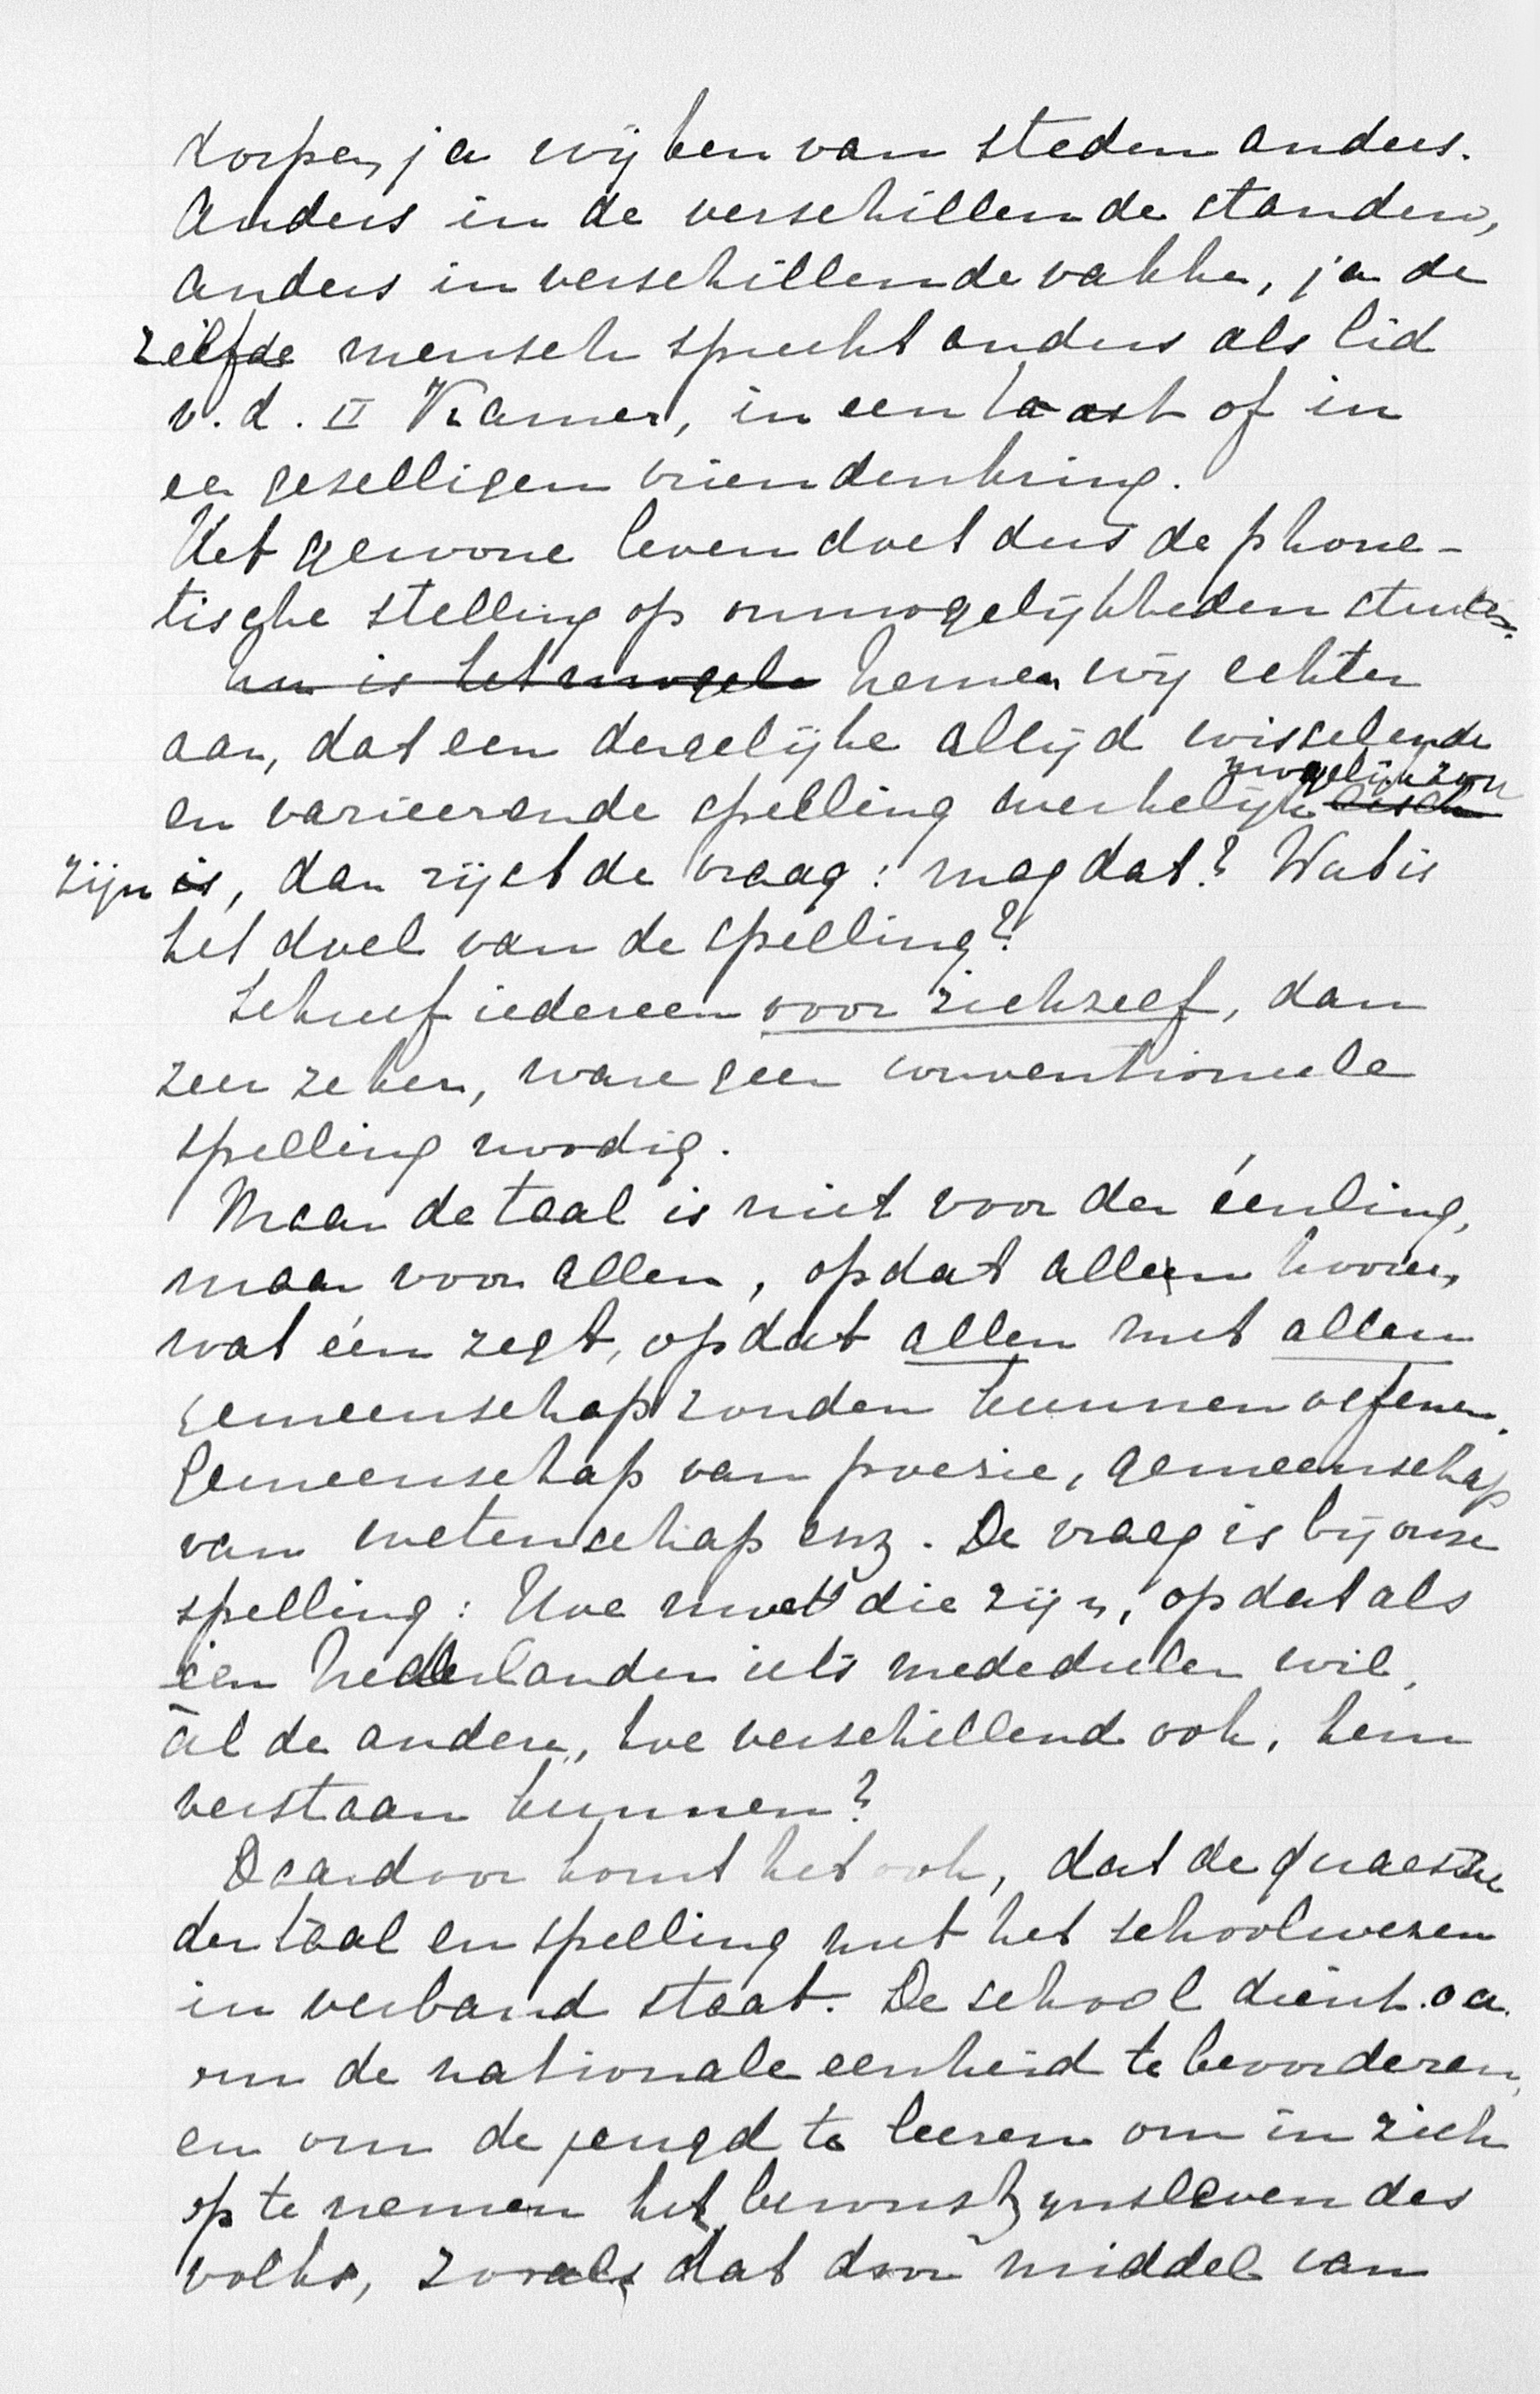 dorpen, ja wijken van steden anders.
Anders in de verschillende standen,
anders in verschillende vakken, ja de
zelfde mensch spreekt anders als lid
v. d. II Kamer, in een toast of in
een geselligen vriendenkring.
Het gewone leven doet dus de phone-
tische stelling op onmogelijkheden stuiten.
nu is het mogel nemen wij echter
aan, dat een dergelijke altijd wisselende
mogelijk zou
en varieerende spelling werkelijk
zijn is, dan rijst de vraag: mag dat? Wat is
het doel van de spelling?
Schreef iedereen voor zichzelf, dan
zeer zeker, ware geen conventioneele
spelling noodig.
Maar de taal is niet voor den éénling,
maar voor allen, opdat allen hooren,
wat één zegt, opdat allen met allen
gemeenschap zouden kunnen oefenen.
Gemeenschap van poezie, gemeenschap
van wetenschap enz. De vraag is bij onze
spelling: Hoe moet die zijn, opdat als
één Nederlander iets mededeelen wil,
ál de andere, hoe verschillend ook, hem
verstaan kunnen?
Daardoor komt het ook, dat de quaestie
der taal en spelling met het schoolwezen
in verband staat. De school dient o.a.
om de nationale eenheid te bevorderen,
en om de jeugd te leeren om in zich
op te nemen het bewustzijnsleven des
volks, zooals dat door middel van